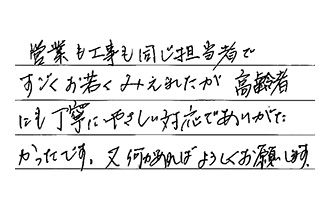 営業も工事も同じ担当者で
すごくお若くみえましたが 高齢者
にも丁寧にやさしい対応でありがた
かったです。又何かあればよろしくお願します。